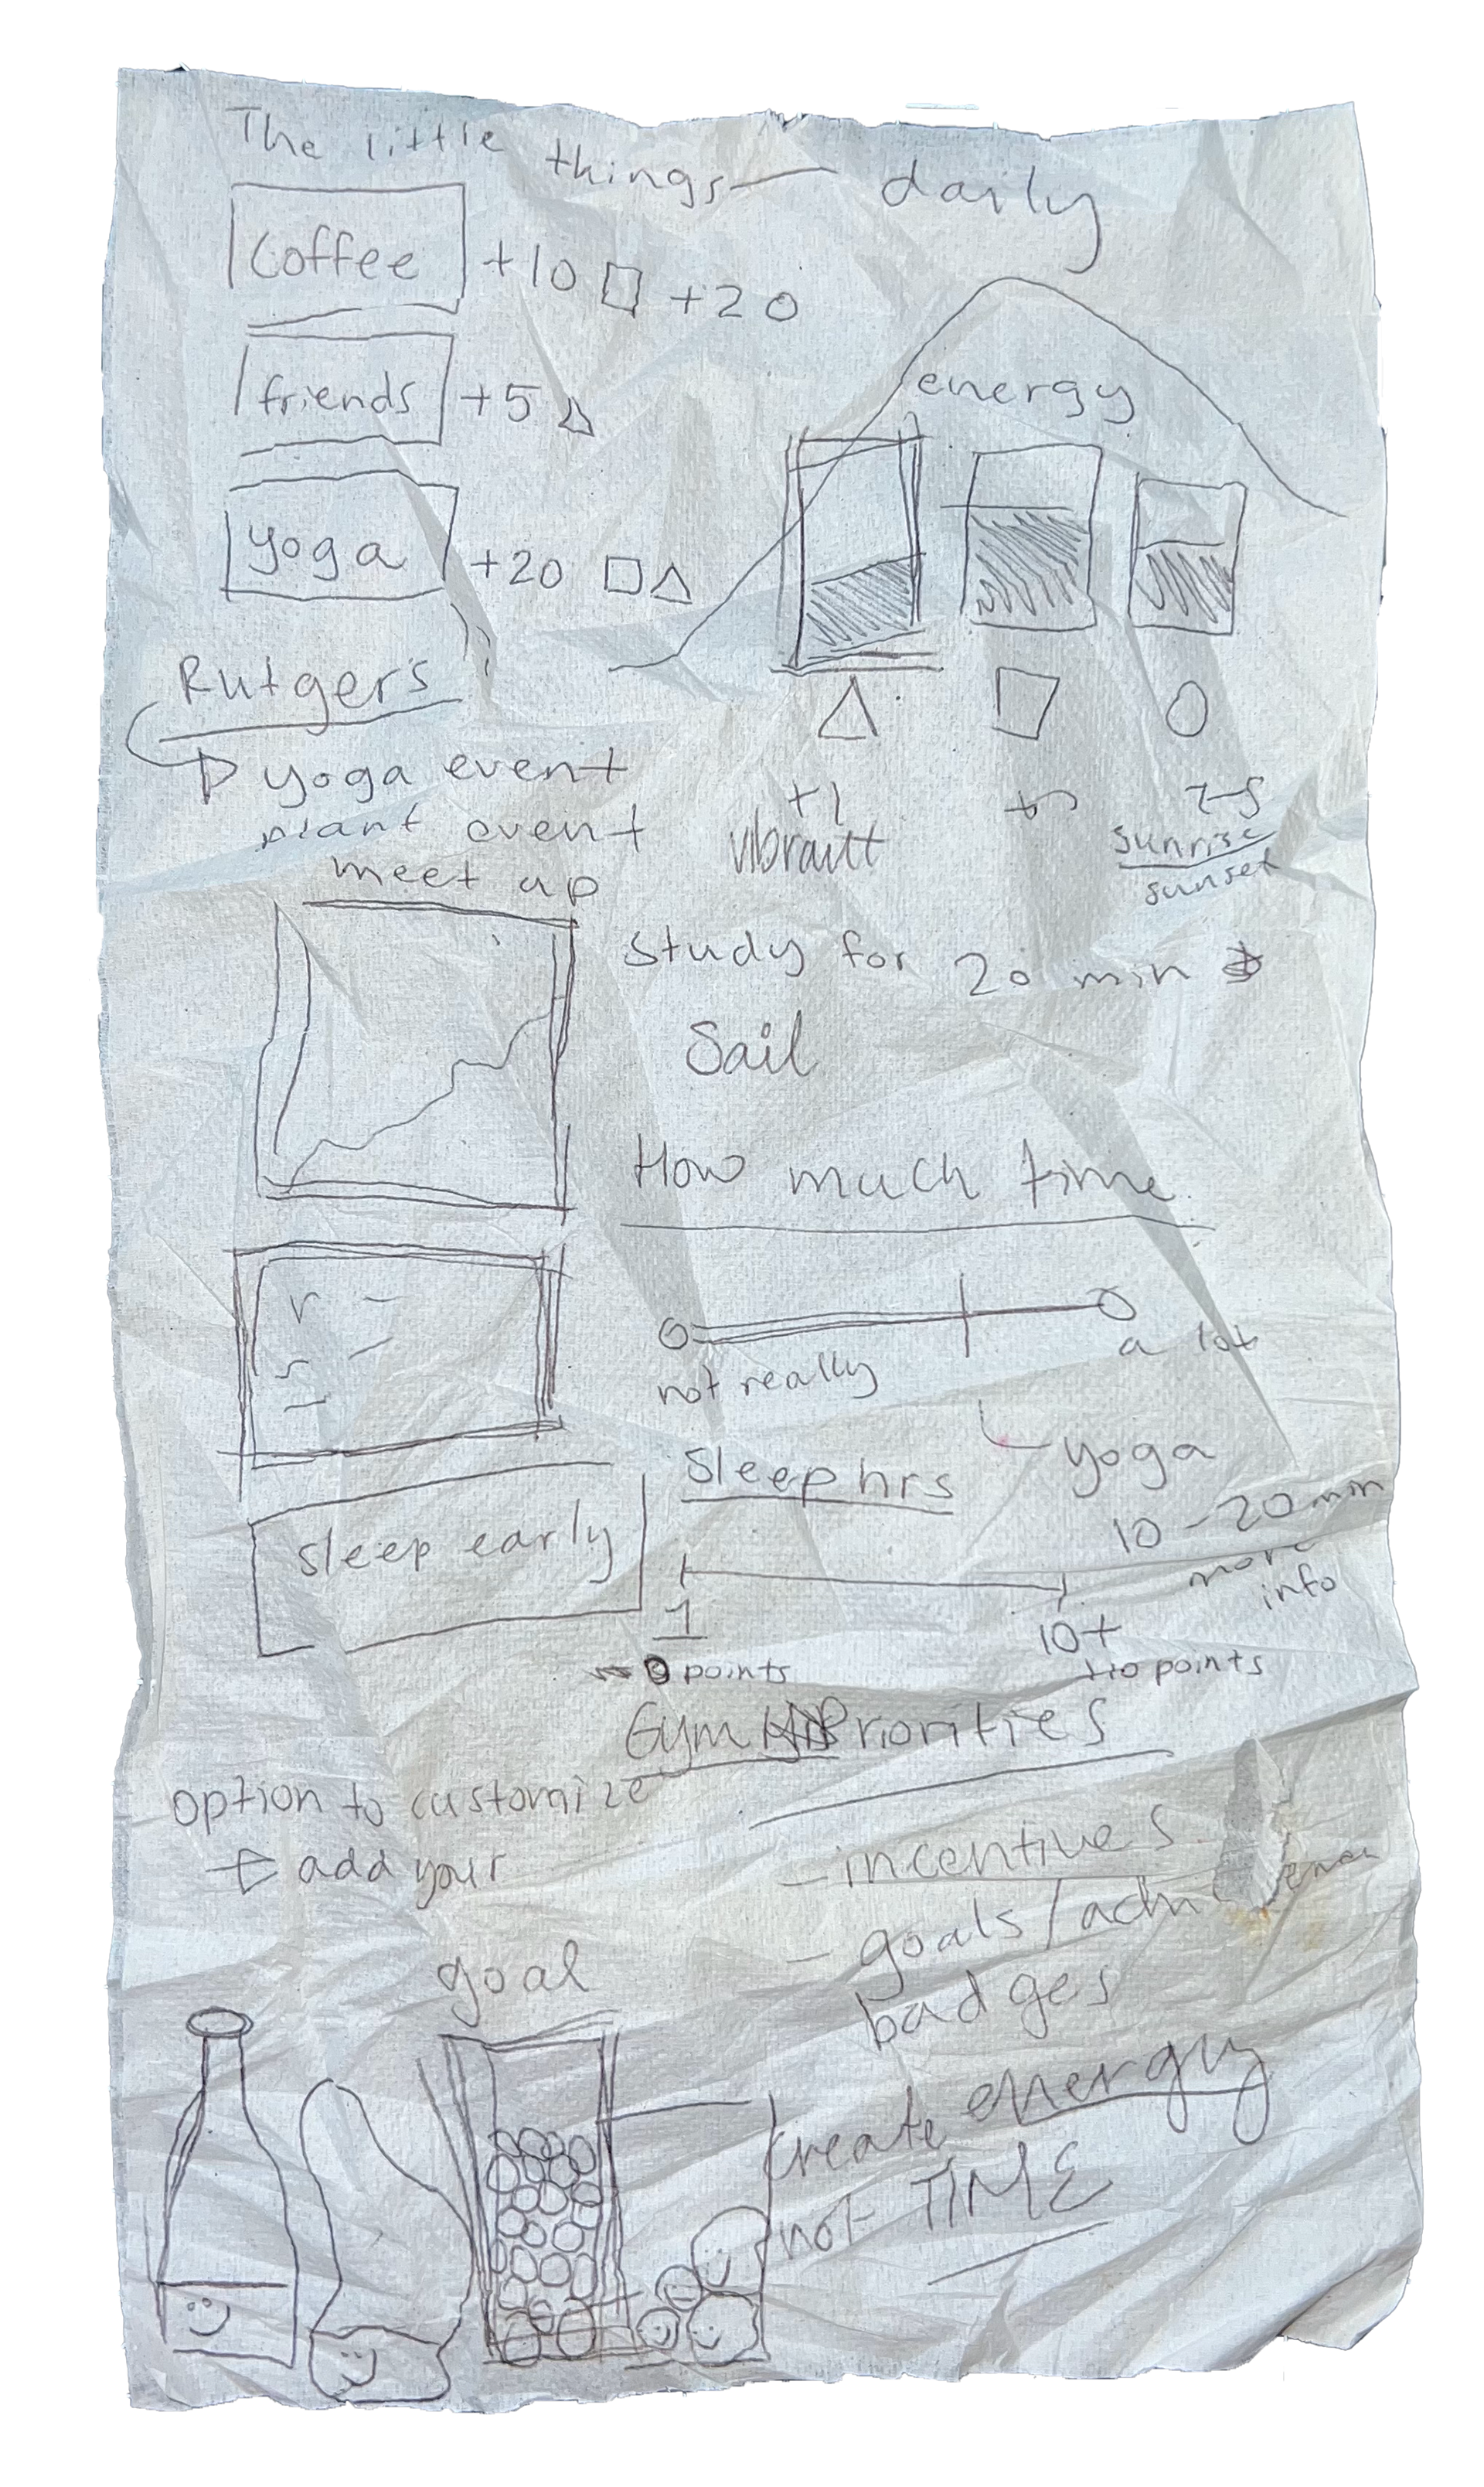 The little things — daily
coffee +10 □ +20
friends +5 △
yoga +20 □△
energy
Rutgers
yoga event
plant event
meet up
+1
vibrant
+5
sunrise
sunset
Study for 20 min
Sail
How much time
not really
a lot
yoga
10-20 min
more
info
Sleep hrs
sleep early
1
10+
0 points
+10 points
Gym Priorities
option to customize
add your
- incentives
- goals/
badges
goal
create energy
not TIME